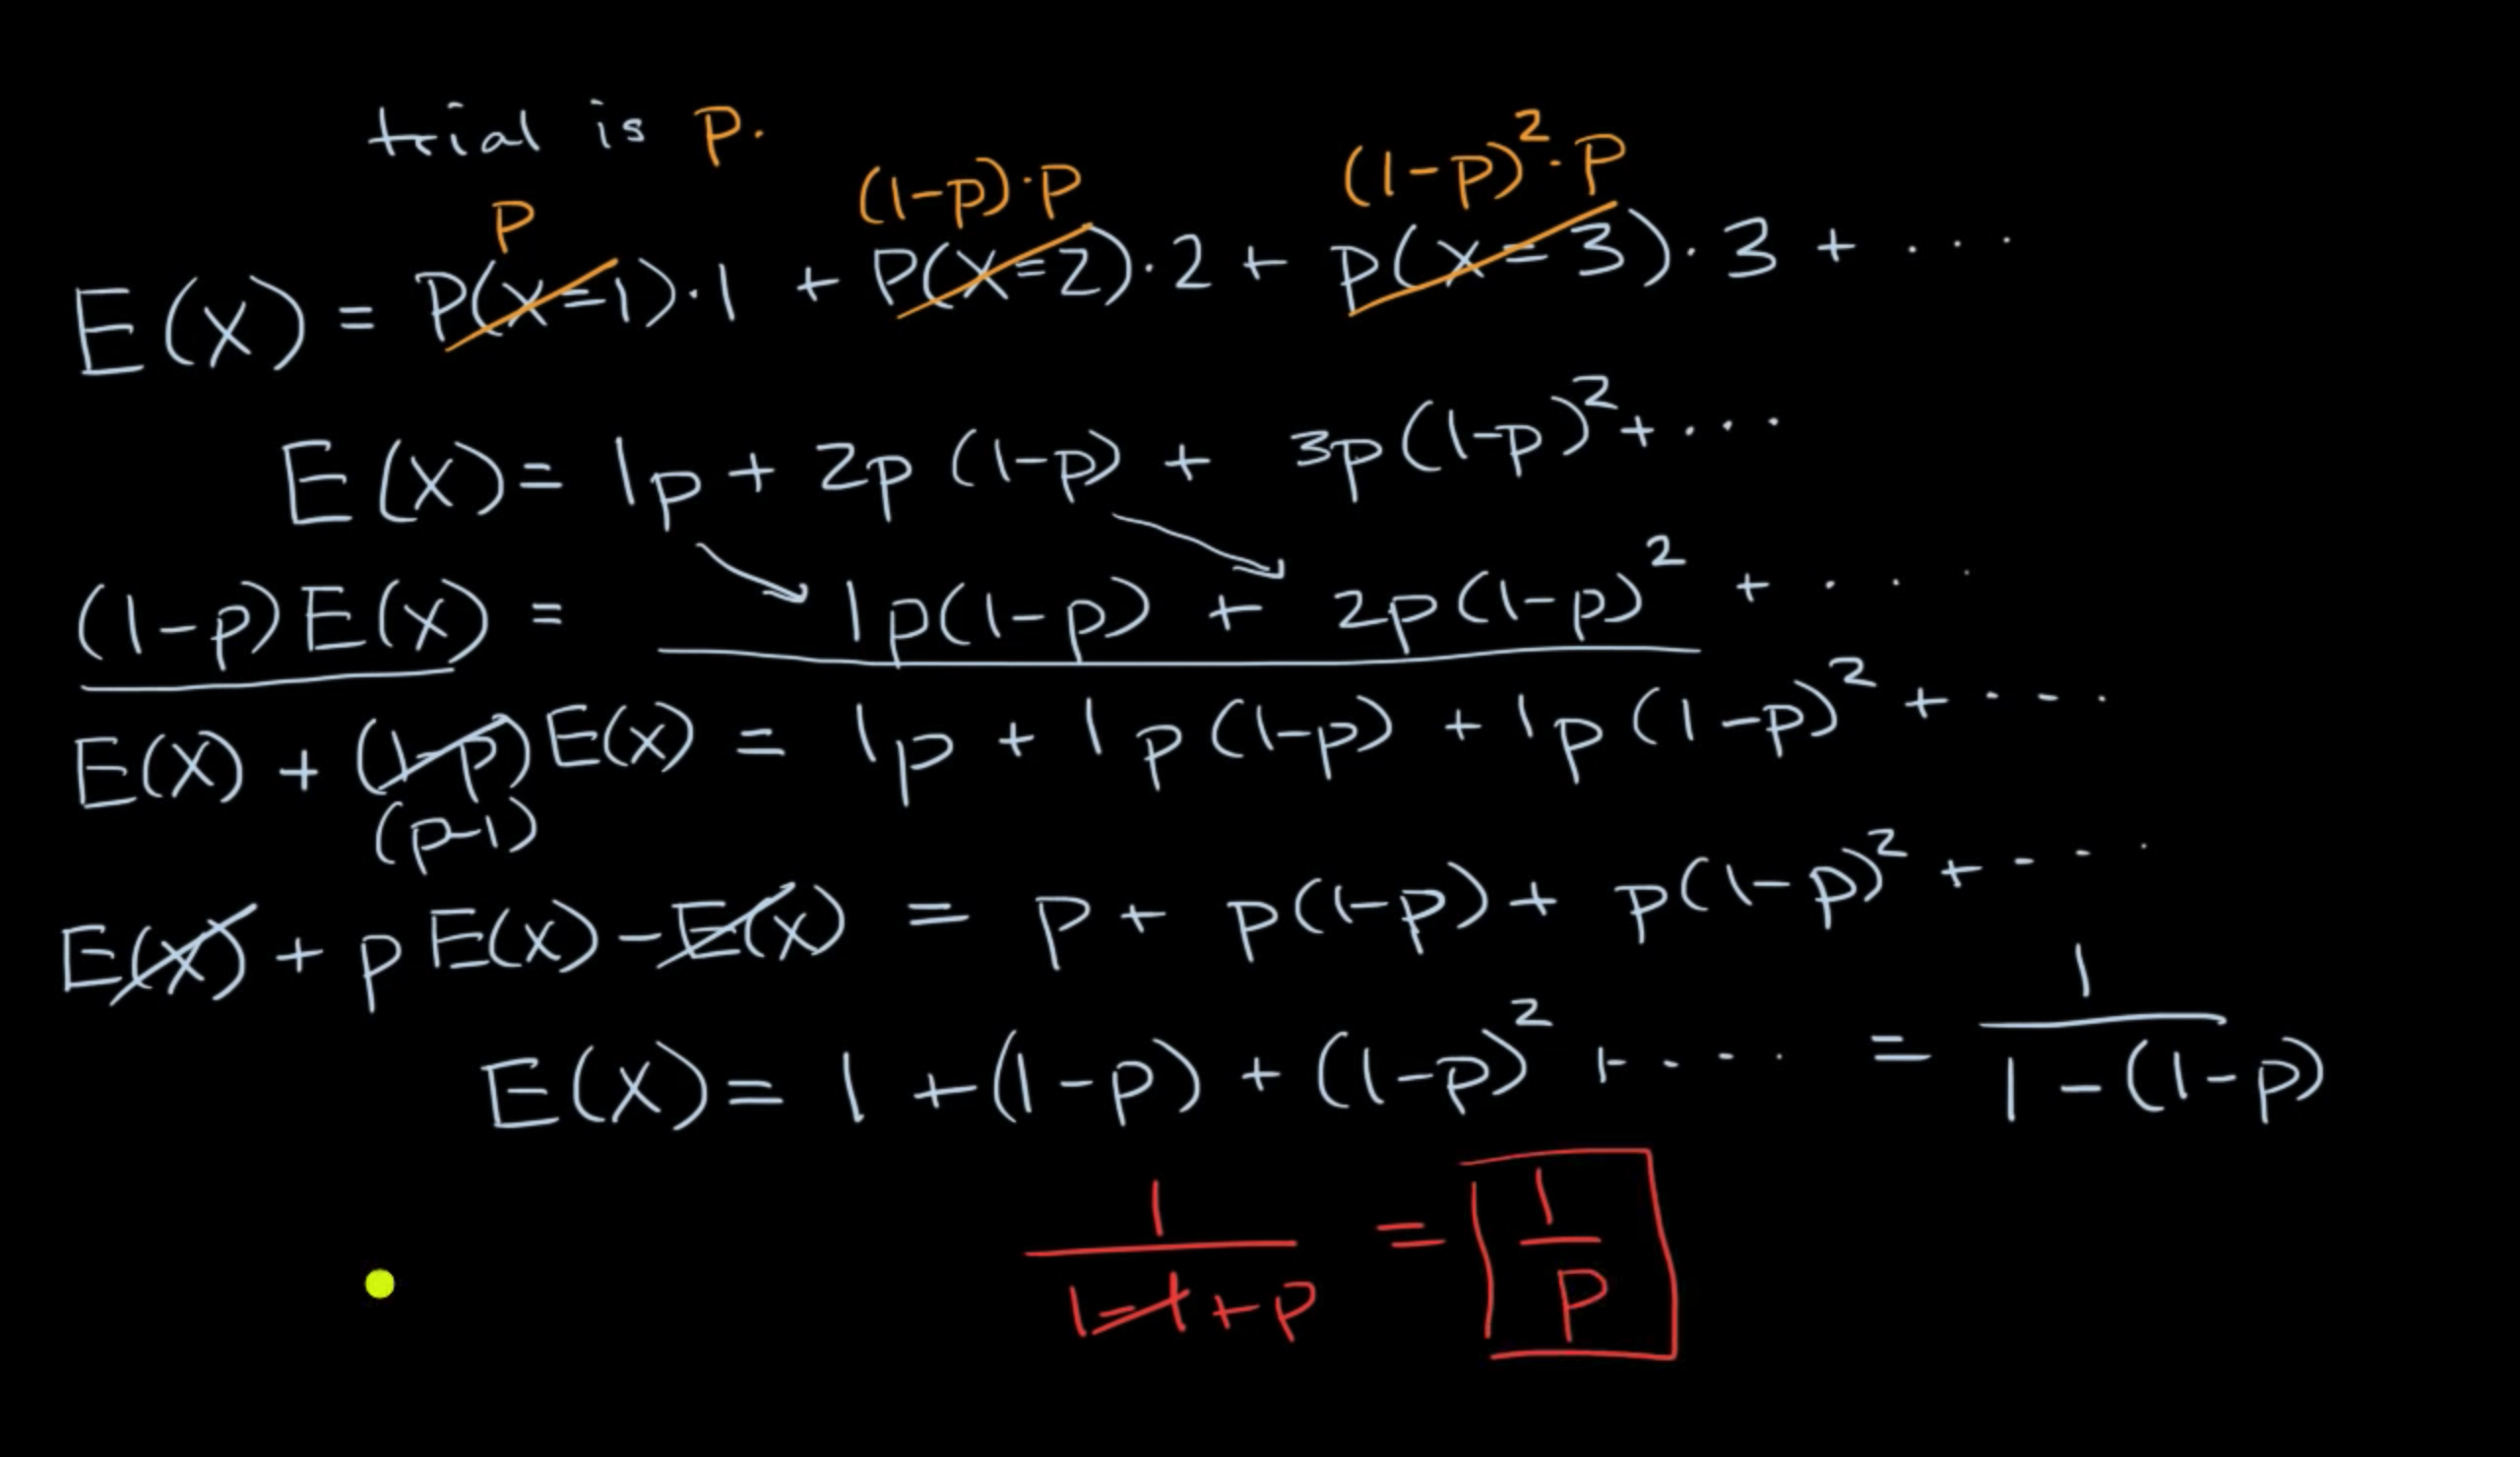 trial is p.
p (1-p)·p (1-p)²·p
E(X) = P(X=1)·1 + P(X=2)·2 + P(X=3)·3 + ···
E(X) = 1p + 2p(1-p) + 3p(1-p)² + ···
(1-p)E(X) = 1p(1-p) + 2p(1-p)² + ···
E(X) + (1-p)E(X) = 1p + 1p(1-p) + 1p(1-p)² + ···
(p-1)
E(X) + pE(X) - E(X) = p + p(1-p) + p(1-p)² + ···
E(X) = 1 + (1-p) + (1-p)² + ···· = 1/(1-(1-p))
1/(1-1+p) = 1/p